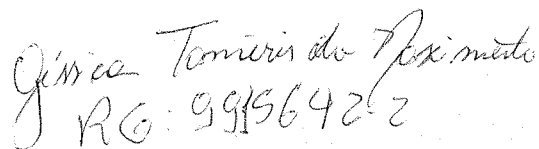 Géssica Tamieris do Nascimento
RG: 9915642-2